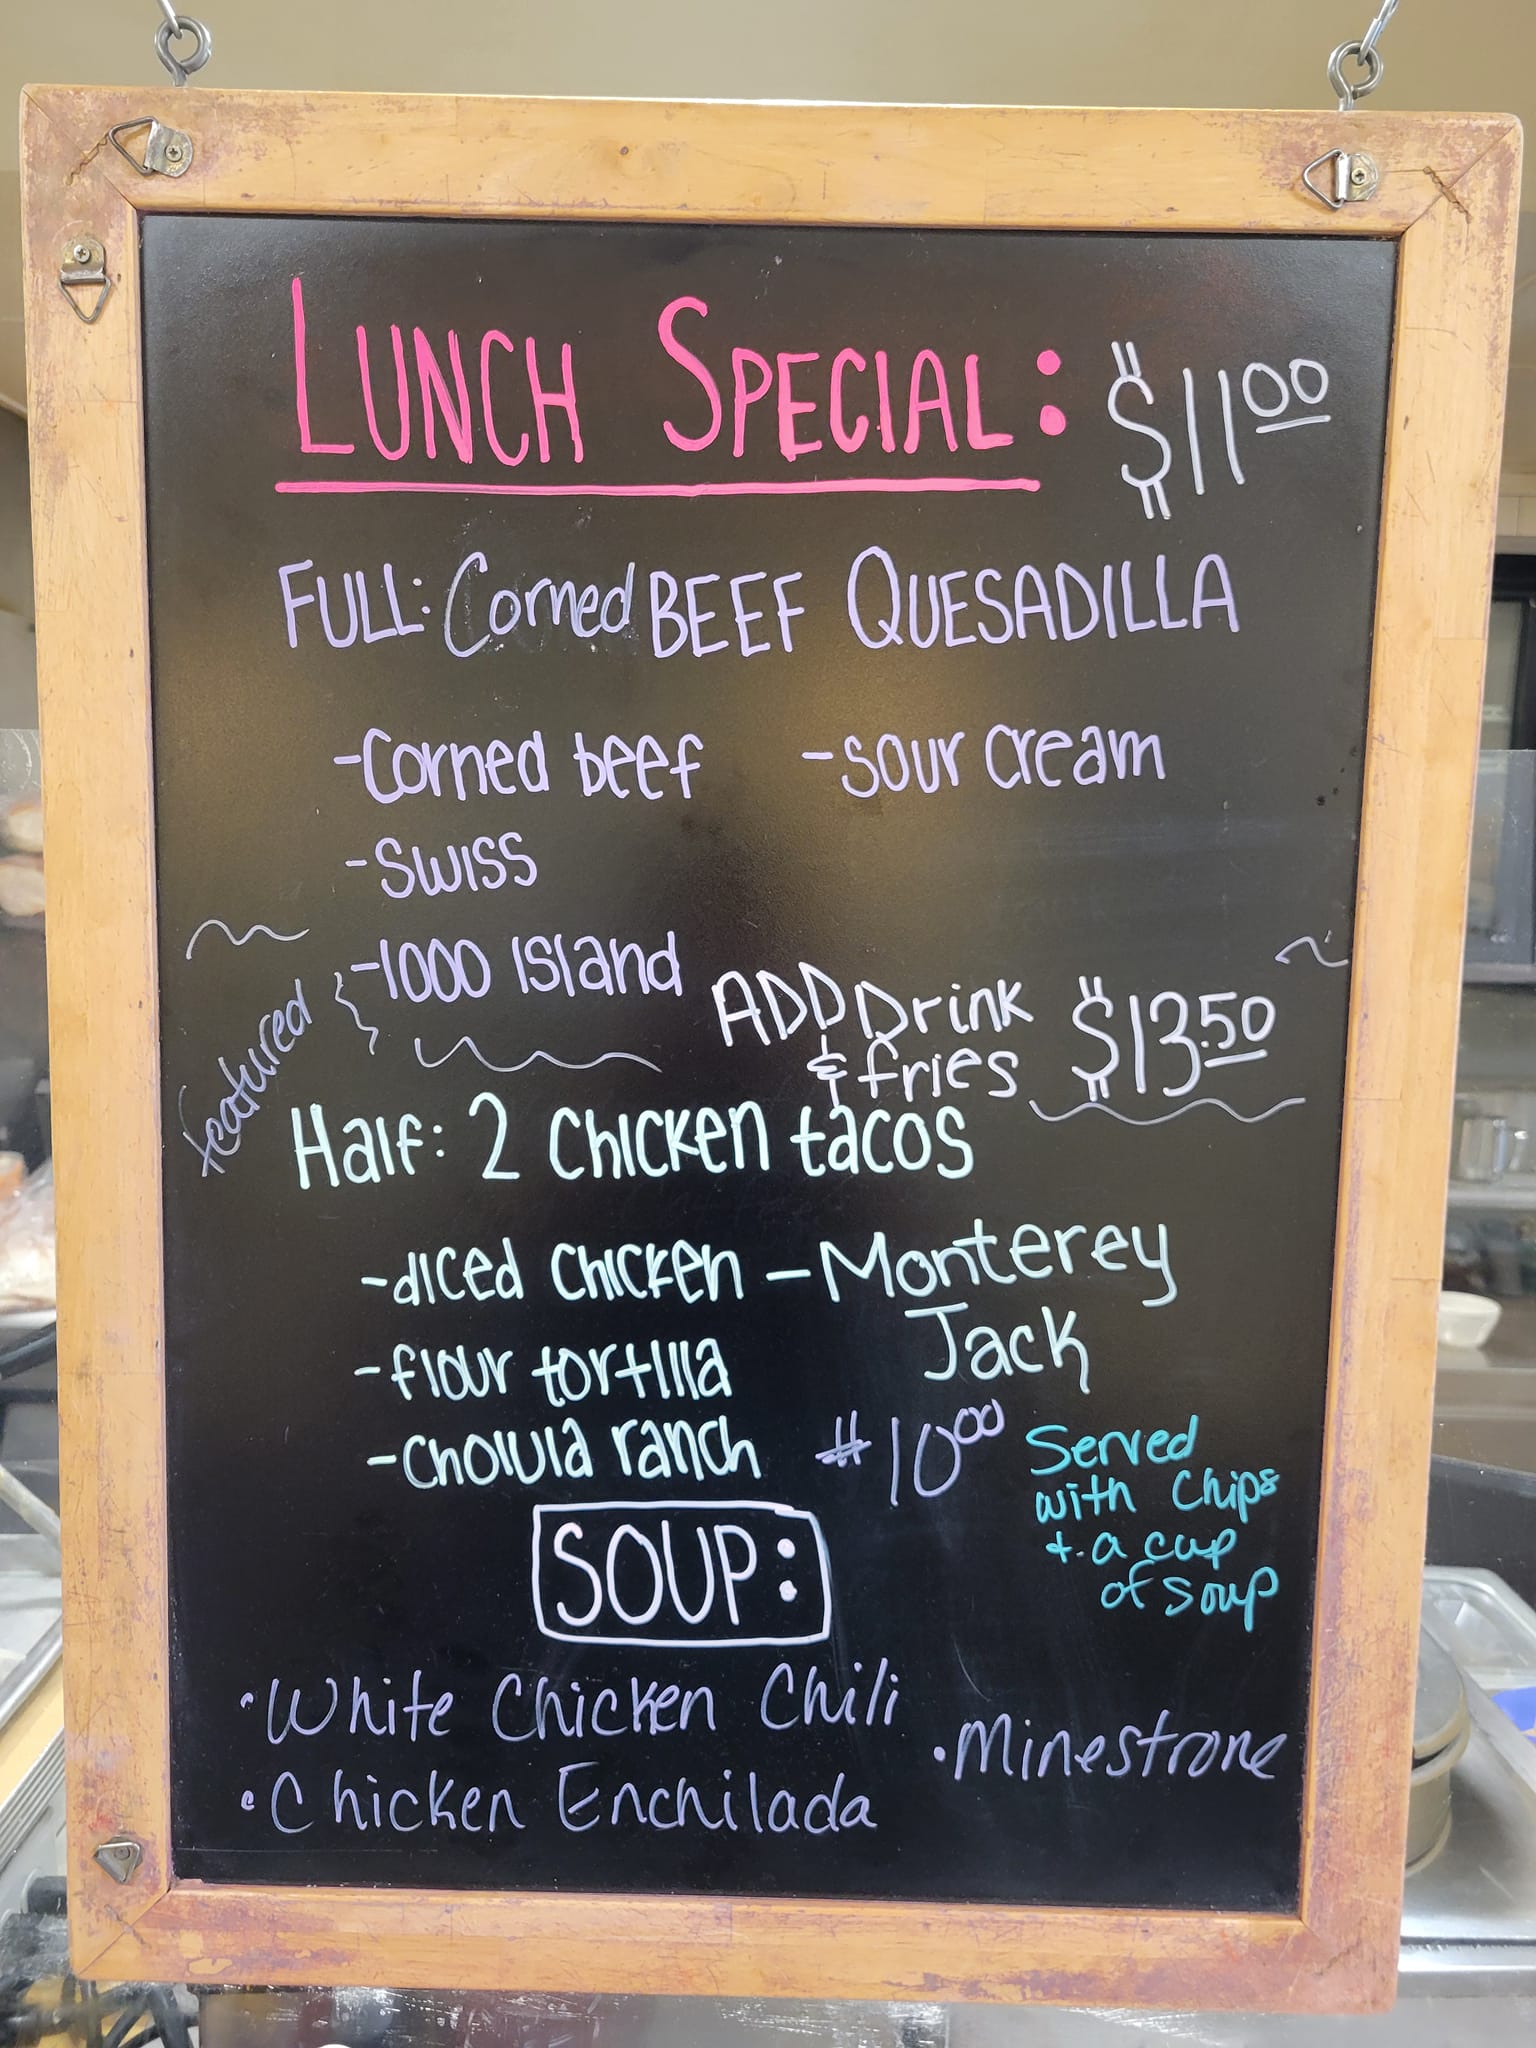 LUNCH SPECIAL: $11.00
FULL: Corned BEEF QUESADILLA
-Corned beef
-sour cream
-SWISS
-1000 Island
featured
ADD Drink
& fries
$13.50
Half: 2 Chicken tacos
-diced chicken
-Monterey
Jack
-flour tortilla
-Cholula ranch
#10.00
Served
with Chips
+ a cup
of soup
SOUP:
•White Chicken Chili
•Minestrone
•Chicken Enchilada